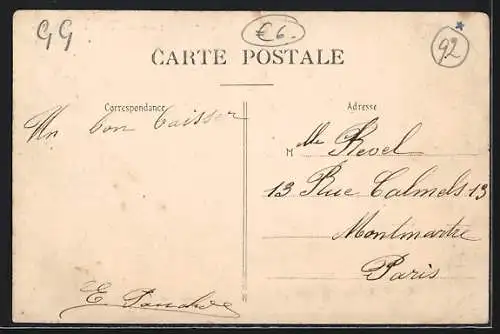 GG
€6.
92
*
CARTE POSTALE
Correspondance
Adresse
Un bon baisser
Mlle Revel
13 Rue Calmels 13
Montmartre
Paris
E.